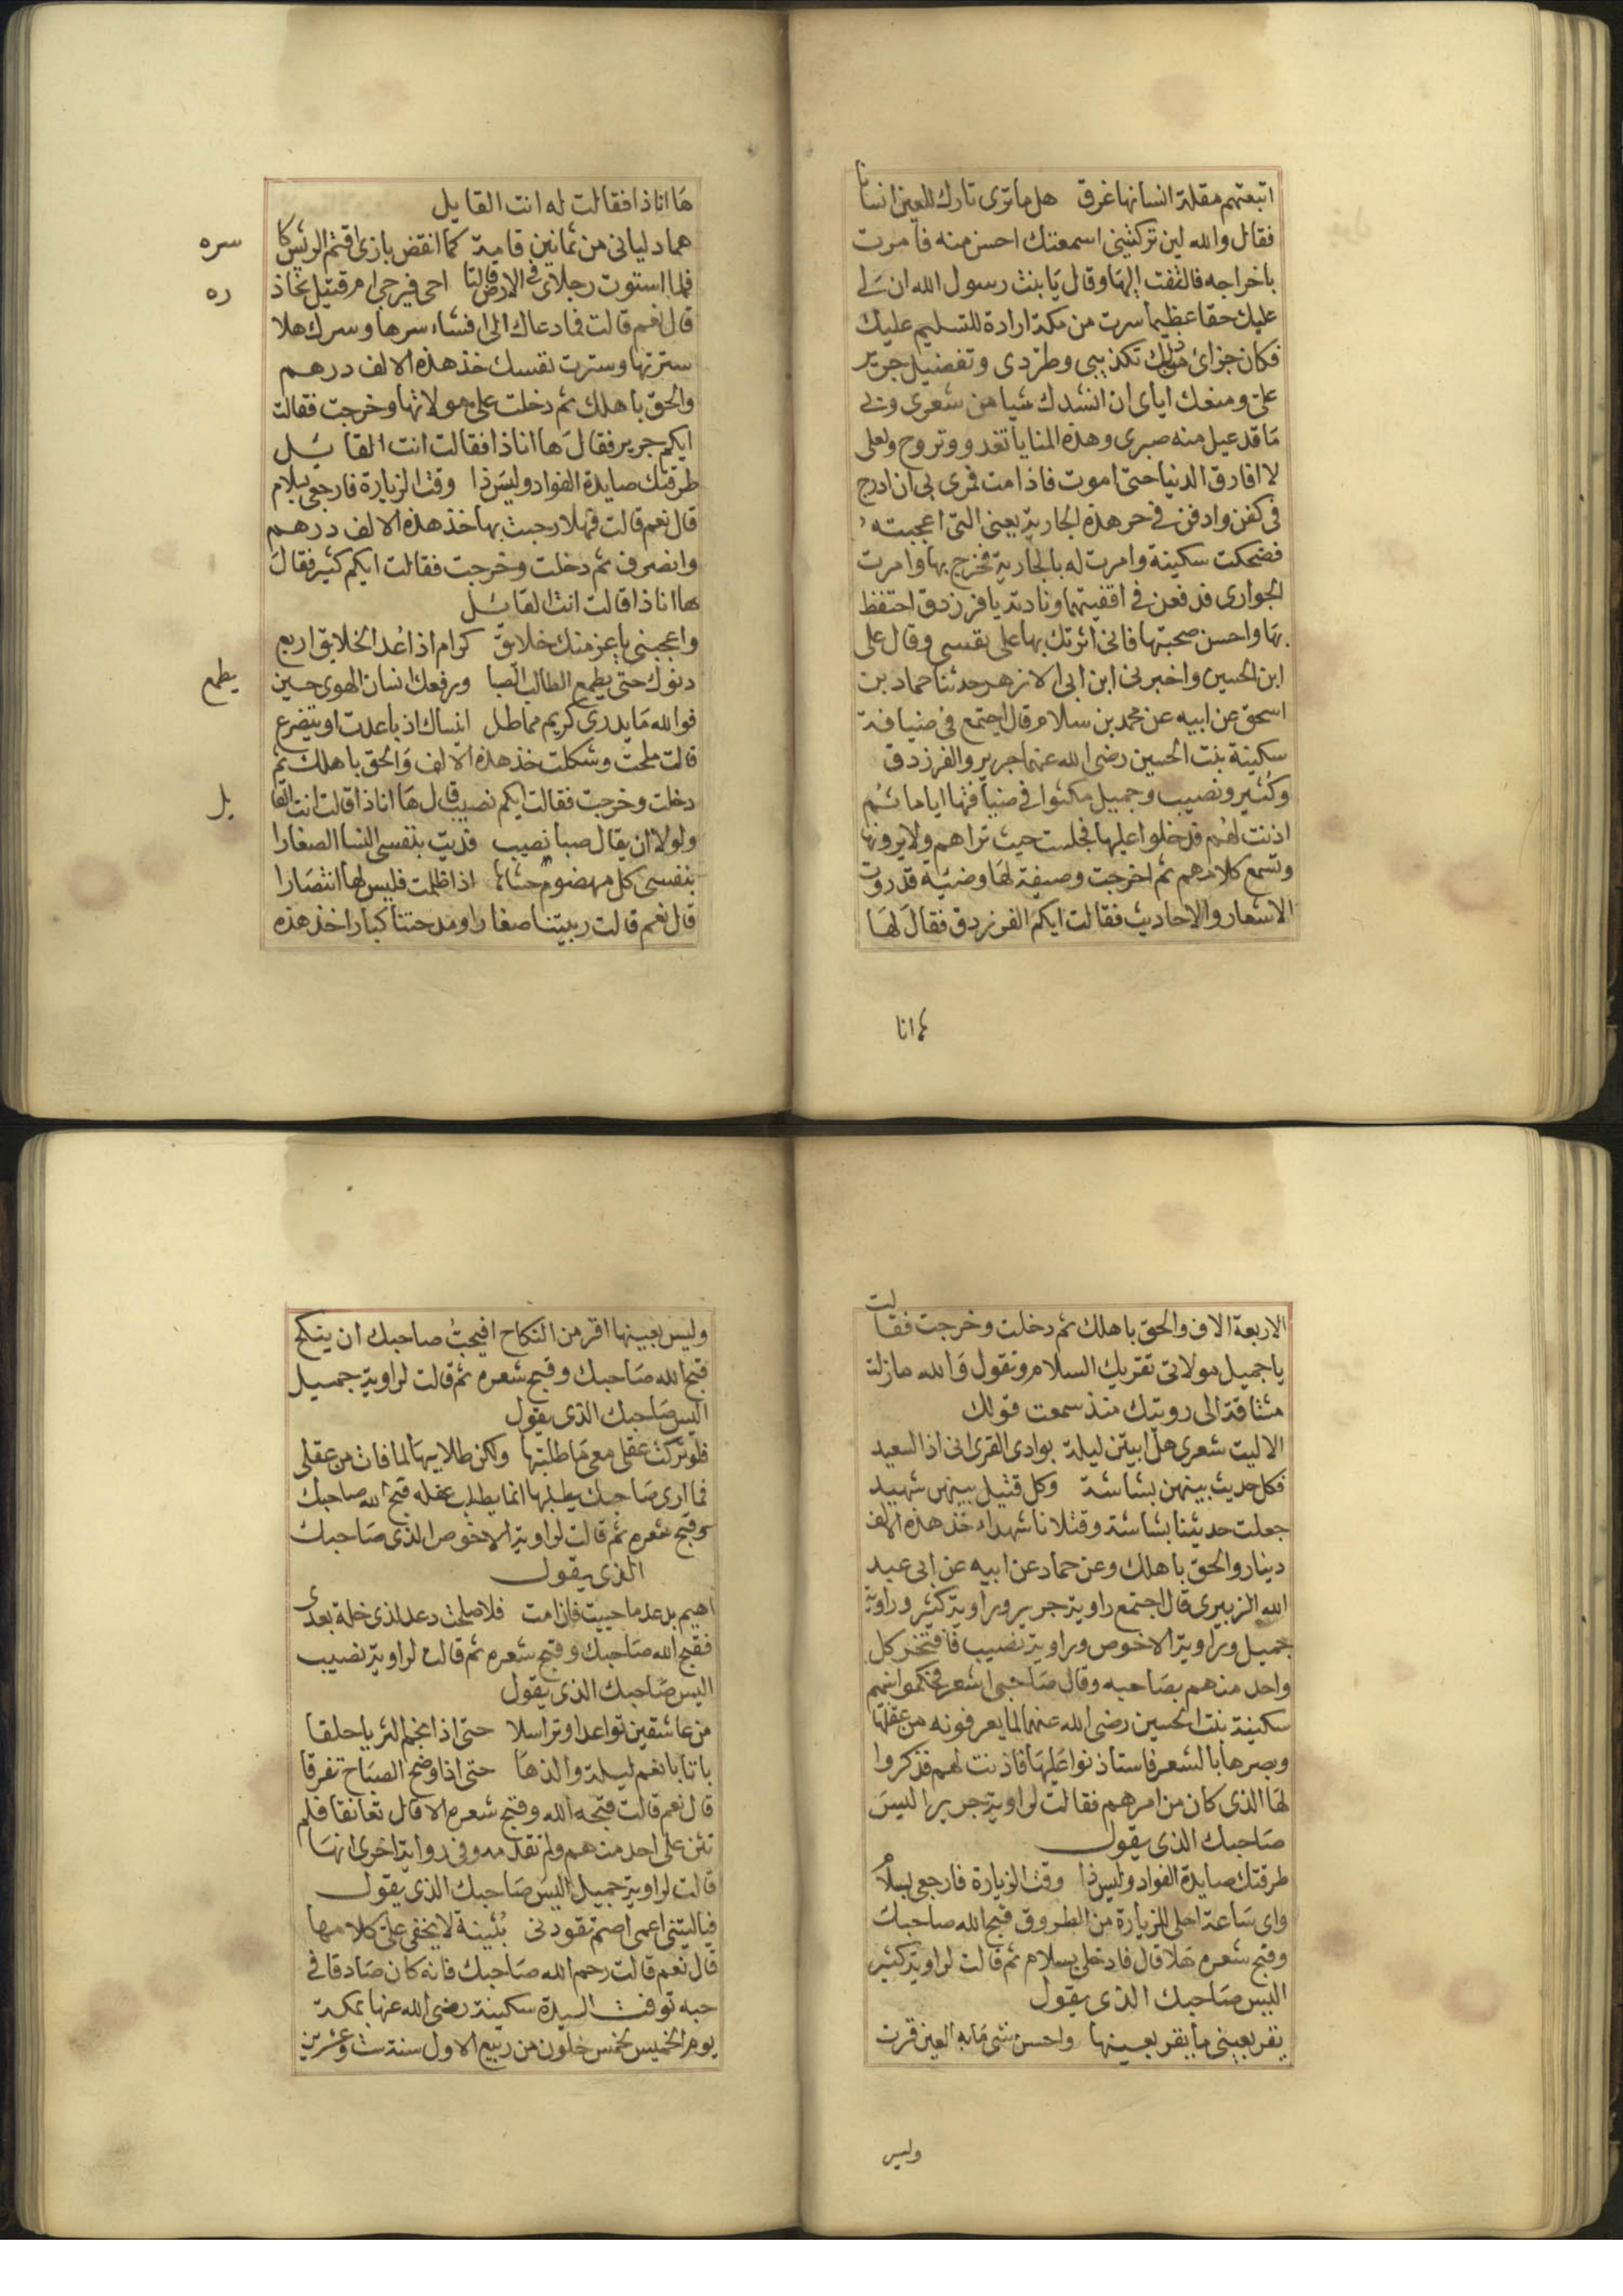 اتبعتهم مقلة انسانها غرق هل ما ترى تارك للعين انسانا
فقال والله لين تركتيني اسمعتك احسن منه فامرت
باخراجه فالتفت اليها وقال يا بنت رسول الله ان لى
عليك حقا عظيما سرت من مكة ارادة للتسليم عليك
فكان جزاى منك تكذيبى وطردى وتفضيل جرير
على ومنعك اياى ان انشدك شيا من شعرى وبى
ما قد عيل منه صبرى وهذه المنايا تغدو وتروح ولعلى
لا افارق الدنيا حتى اموت فاذا مت فمرى بى ان ادرج
فى كفن وادفن فى حر هذه الجارية يعنى التى اعجبته
فضحكت سكينة وامرت له بالجارية فخرج بها وامرت
الجوارى فدفعن فى اقفيتهما ونادته يا فرزدق احتفظ
بها واحسن صحبتها فانى اثرتك بها على نفسى وقال على
ابن الحسين واخبرنى ابن ابى الازهر حدثنا حماد بن
اسحق عن ابيه عن محمد بن سلام قال اجتمع فى ضيافة
سكينة بنت الحسين رضى الله عنهما جرير والفرزدق
وكثير ونصيب وجميل مكثوا فى ضيافتها اياما ثم
اذنت لهم فدخلوا عليها فجلست حيث تراهم ولا يرونها
وتسمع كلامهم ثم اخرجت وصيفة لها وضيه قد روت
الاشعار والاحاديث فقالت ايكم الفرزدق فقال لها
ها انا
ها انا ذا فقالت له انت القايل
هما دليانى من ثمانين قامة كما انقض بازى اقتم الريش كاسره
فلما استوت رجلاى فى الارض قالتا احى فيرجى ام قتيل نحاذره
قال نعم قالت فما دعاك الى افشاء سرها وسرك هلا
سترتها وسترت نفسك خذ هذه الالف درهم
والحق باهلك ثم دخلت على مولاتها وخرجت فقالت
ايكم جرير فقال ها انا ذا فقالت انت القايل
طرقتك صايدة الفواد وليس ذا وقت الزيارة فارجعى بسلام
قال نعم قالت فهلا رحبت بها خذ هذه الالف درهم
وانصرف ثم دخلت وخرجت فقالت ايكم كثير فقال
ها انا ذا قالت انت القائل
واعجبنى يا عز منك خلايق كرام اذا عد الخلايق اربع
دنوك حتى يطمع الطالب الصبا ورفعك انسان الهوى حين يطمع
فوالله ما يدرى كريم مماطل اينساك اذ باعدت او يتضرع
قالت ملحت وشكلت خذ هذه الالف والحق باهلك ثم
دخلت وخرجت فقالت ايكم نصيب قال ها انا ذا قالت انت القايل
ولولا ان يقال صبا نصيب فديت بنفسى النسا الصغارا
بنفسى كل مهضوم حشاها اذا ظلمت فليس لها انتصارا
قال نعم قالت ربيتنا صغارا ومدحتنا كبارا خذ هذه
الاربعة الاف والحق باهلك ثم دخلت وخرجت فقالت
يا جميل مولاتى تقريك السلام وتقول والله ما زلت
مشتاقة الى رويتك منذ سمعت قولك
الا ليت شعرى هل ابيتن ليلة بوادى القرى انى اذا لسعيد
فكل حديث بينهن بشاشة وكل قتيل بينهن شهيد
جعلت حديثنا بشاشة وقتلانا شهداء خذ هذه الالف
دينار والحق باهلك وعن حماد عن ابيه عن ابى عبد
الله الزبيرى قال اجتمع راوية جرير وراوية كثير وراوية
جميل وراوية الاخوص وراوية نصيب فافتخر كل
واحد منهم بصاحبه وقال صاحبى اشعر فحكموا بينهم
سكينة بنت الحسين رضى الله عنهما لما يعرفونه من عقلها
وبصرها بالشعر فاستاذنوا عليها فاذنت لهم فذكروا
لها الذى كان من امرهم فقالت لراوية جرير اليس
صاحبك الذى يقول
طرقتك صايدة الفواد وليس ذا وقت الزيارة فارجعى بسلام
واى ساعة احلى للزيارة من الطروق قبح الله صاحبك
وقبح شعره هلا قال فادخلى بسلام ثم قالت لراوية كثير
اليس صاحبك الذى يقول
يقر بعينى ما يقر بعينها واحسن شى ما به العين قرت
وليس
وليس بعينها اقر من النكاح افيحب صاحبك ان ينكح
قبح الله صاحبك وقبح شعره ثم قالت لراوية جميل
اليس صاحبك الذى يقول
فلو تركت عقلى معى ما طلبتها ولكن طلابيها لما فات من عقلى
فما ارى صاحبك يطلبها انما يطلب عقله قبح الله صاحبك
وقبح شعره ثم قالت لراوية الاخوص الذى صاحبك
الذى يقول
اهيم بدعد ما حييت فان امت فلا صلحت دعد لذى خلة بعدى
فقبح الله صاحبك وقبح شعره ثم قالت لراوية نصيب
اليس صاحبك الذى يقول
من عاشقين تواعدا وتراسلا حتى اذا نجم الثريا حلقا
باتا بانعم ليلة والذها حتى اذا وضح الصباح تفرقا
قال نعم قالت قبحه الله وقبح شعره الا قال تعانقا فلم
تثن على احد منهم ولم تقدمه وفى رواية اخرى انها
قالت لراوية جميل اليس صاحبك الذى يقول
فياليتنى اعمى اصم تقودنى بثينة لا يخفى على كلامها
قال نعم قالت رحم الله صاحبك فانه كان صادقا فى
حبه توفت السيدة سكينة رضى الله عنها بمكة
يوم الخميس لخمس خلون من ربيع الاول سنة ست وعشرين